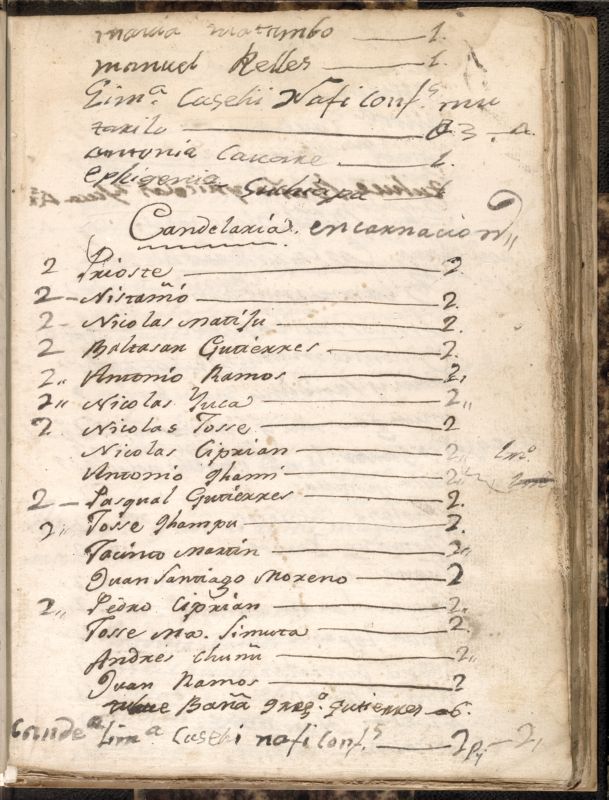 maria matumbo — 1.
manuel Relles — 1.
Limª Casehi Nafi Conf.s
— 3 –
antonia — 1.
ephigenia
Candelaria. encarnacion
2 Prioste — 2
2 – Nistamó — 2.
2 – Nicolas Matisu — 2.
2 Baltasar Gutierres — 2.
2,, Antonio Ramos — 2,
2,, Nicolas Yuca — 2,,
2. Nicolas Tosse — 2
Nicolas Ciprian — 2,,
Antonio Ghami — 2,,
2 – Pasqual Gutierres — 2.
2,, Tosse Ghampu — 2.
Tacinto Martin — 2,,
Juan Santiago Moreno — 2
2,, Pedro Ciprian — 2.
Tosse Ma. Simuta — 2.
Andres Chunu — 2,,
Juan Ramos — 2
Greg.º Gutierres – 6.
Candeª Limª Casehi nafi Conf.s — 2